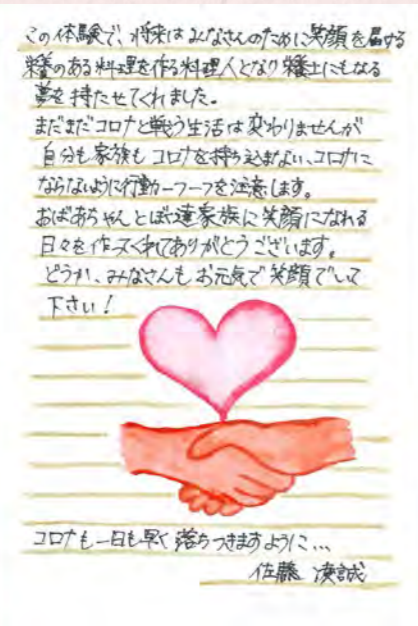 この体験で、将来はみなさんのために笑顔を届ける
栄養のある料理を作る料理人となり栄養士にもなる
夢を持たせてくれました。
まだまだコロナと戦う生活は変わりませんが
自分も家族もコロナを持ち込まない、コロナに
ならないように行動一つ一つを注意します。
おばあちゃんとぼく達家族に笑顔になれる
日々を作ってくれてありがとうございます。
どうか、みなさんもお元気で笑顔でいて
下さい！
コロナも一日も早く落ちつきますように…
佐藤 誠